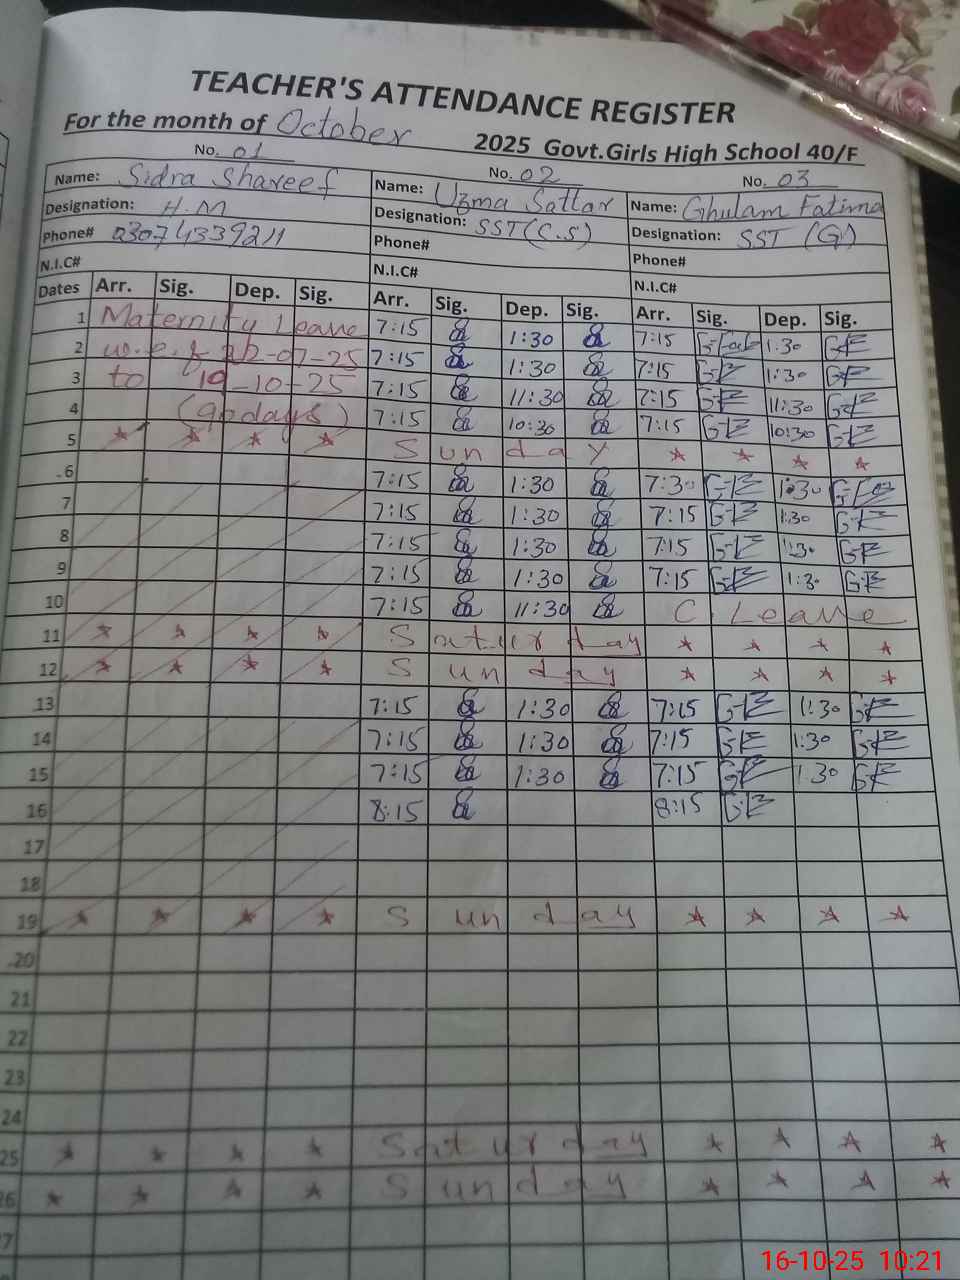 TEACHER'S ATTENDANCE REGISTER
For the month of October 2025 Govt.Girls High School 40/F
No. 01 No. 02 No. 03
Name: Sidra Shareef Name: Uzma Sattar Name: Ghulam Fatima
Designation: H.M Designation: SST(C.S) Designation: SST (G)
Phone# 03074339211 Phone# Phone#
N.I.C# N.I.C# N.I.C#
Dates Arr. Sig. Dep. Sig. Arr. Sig. Dep. Sig. Arr. Sig. Dep. Sig.
1 Maternity Leave 7:15 1:30 7:15 1:30
2 w.e.f 22-07-25 7:15 1:30 7:15 GF 1:30 GF
3 to 19-10-25 7:15 11:30 7:15 GF 11:30 GF
4 (90 days) 7:15 10:30 7:15 GF 10:30 GF
5 Sunday
6 7:15 1:30 7:30 GF 1:30
7 7:15 1:30 7:15 GF 1:30 GF
8 7:15 1:30 7:15 GF 1:30 GF
9 7:15 1:30 7:15 GF 1:30 GF
10 7:15 11:30 C. Leave
11 Saturday
12 Sunday
13 7:15 1:30 7:15 GF 1:30 GF
14 7:15 1:30 7:15 GF 1:30 GF
15 7:15 1:30 7:15 GF 1:30 GF
16 8:15 8:15 GF
17
18
19 Sunday
20
21
22
23
24
25 Saturday
26 Sunday
27
16-10-25 10:21